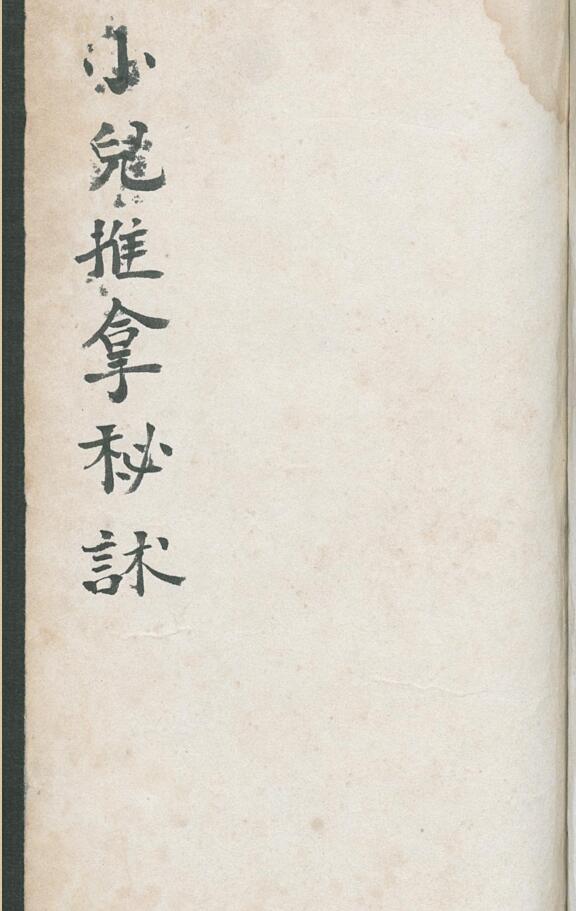 小兒推拿秘訹